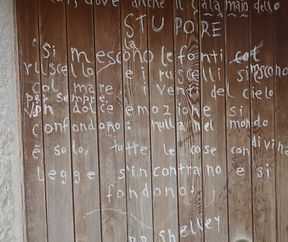 dove anche il calamaio dello
STUPORE
Si mescono le fonti col
ruscello e i ruscelli si mescono
col mare i venti del cielo
per sempre.
con dolce emozione si
confondono: nulla nel mondo
è solo, tutte le cose con divina
legge s'incontrano e si
fondono
Shelley